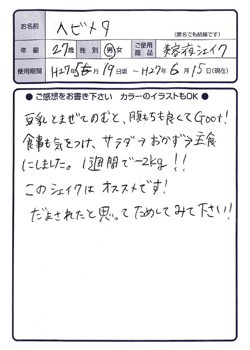 お名前 ヘビメタ
(匿名でも結構です)
年齢 27歳 性別 男・女 ご使用商品 美容液シェイク
使用期間 H27年5月19日頃 ~ H27年6月15日(現在)
●ご感想をお書き下さい カラーのイラストもOK●
豆乳とまぜてのむと、腹もちも良くてGoot!
食事も気をつけ、サラダ→おかず→主食
にしました。1週間で-2kg!!
このシェイクはオススメです!
だまされたと思ってためしてみて下さい!